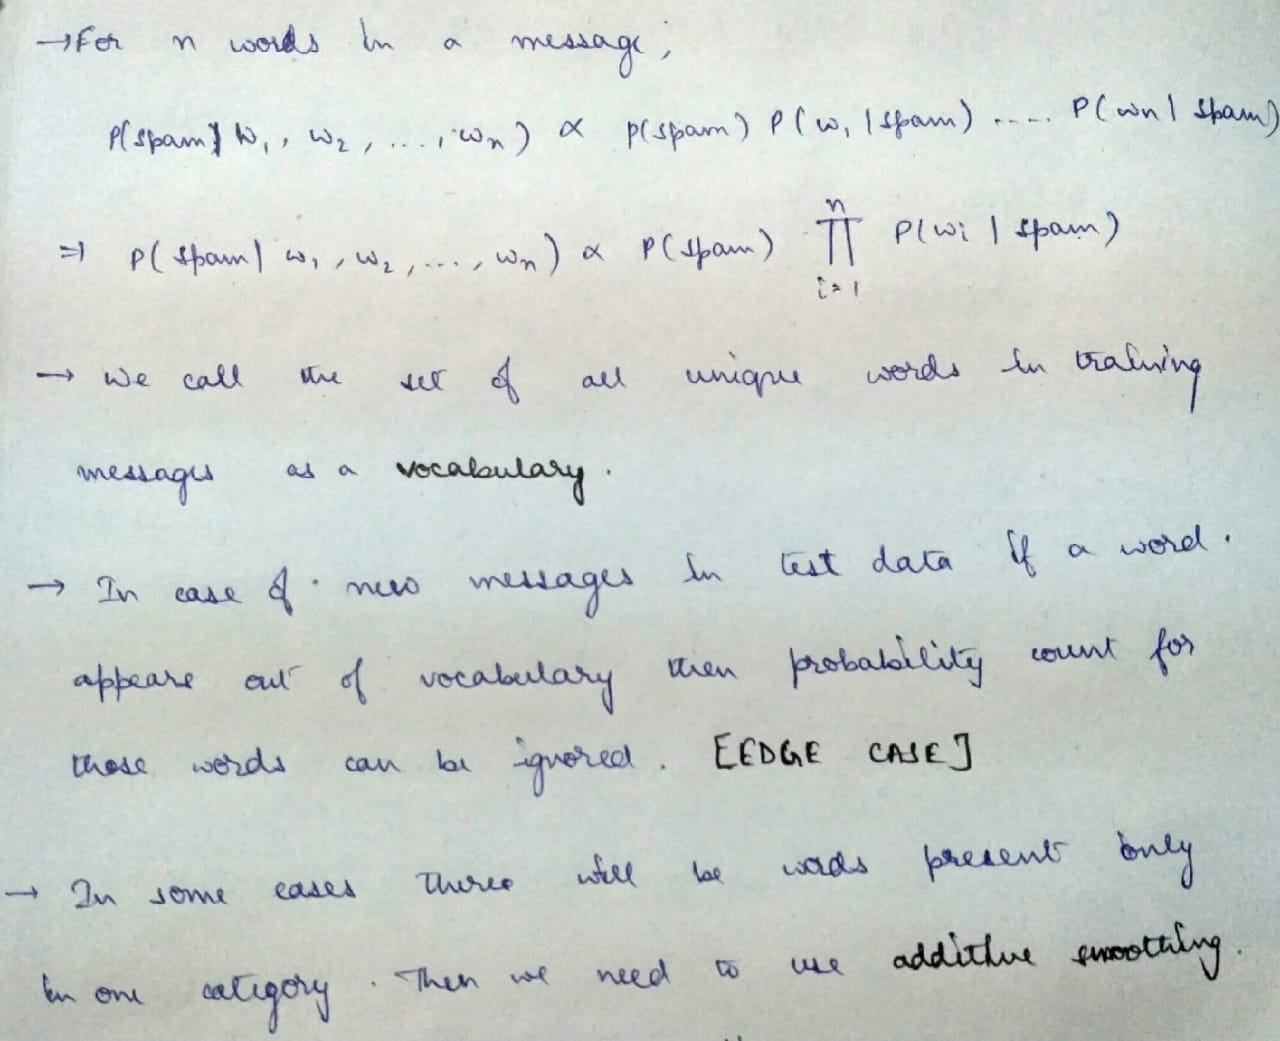 → For n words in a message,
P(spam | w₁, w₂, ..., wₙ) ∝ p(spam) P(w₁ | spam) ..... P(wn | spam)
⇒ P(spam | w₁, w₂, ..., wₙ) ∝ P(spam) ∏ⁿᵢ₌₁ P(wi | spam)
→ We call the set of all unique words in training
messages as a vocabulary.
→ In case of new messages in test data if a word
appears out of vocabulary then probability count for
those words can be ignored. [EDGE CASE]
→ In some cases there will be words present only
in one category. Then we need to use additive smoothing.